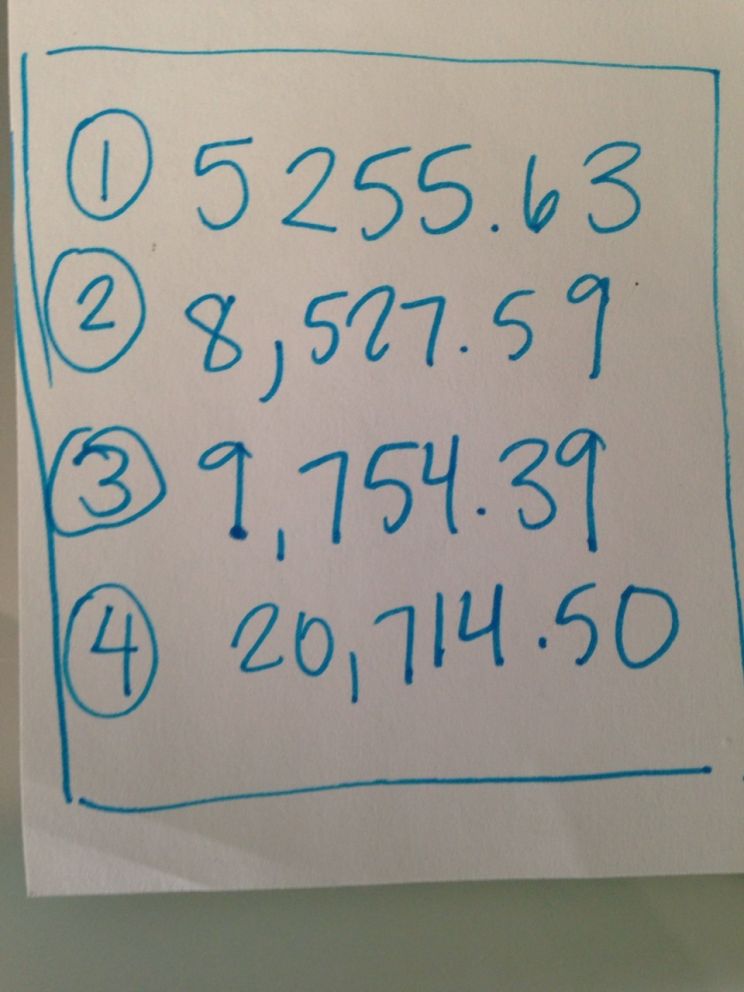 ① 5255.63
② 8,527.59
③ 9,754.39
④ 20,714.50